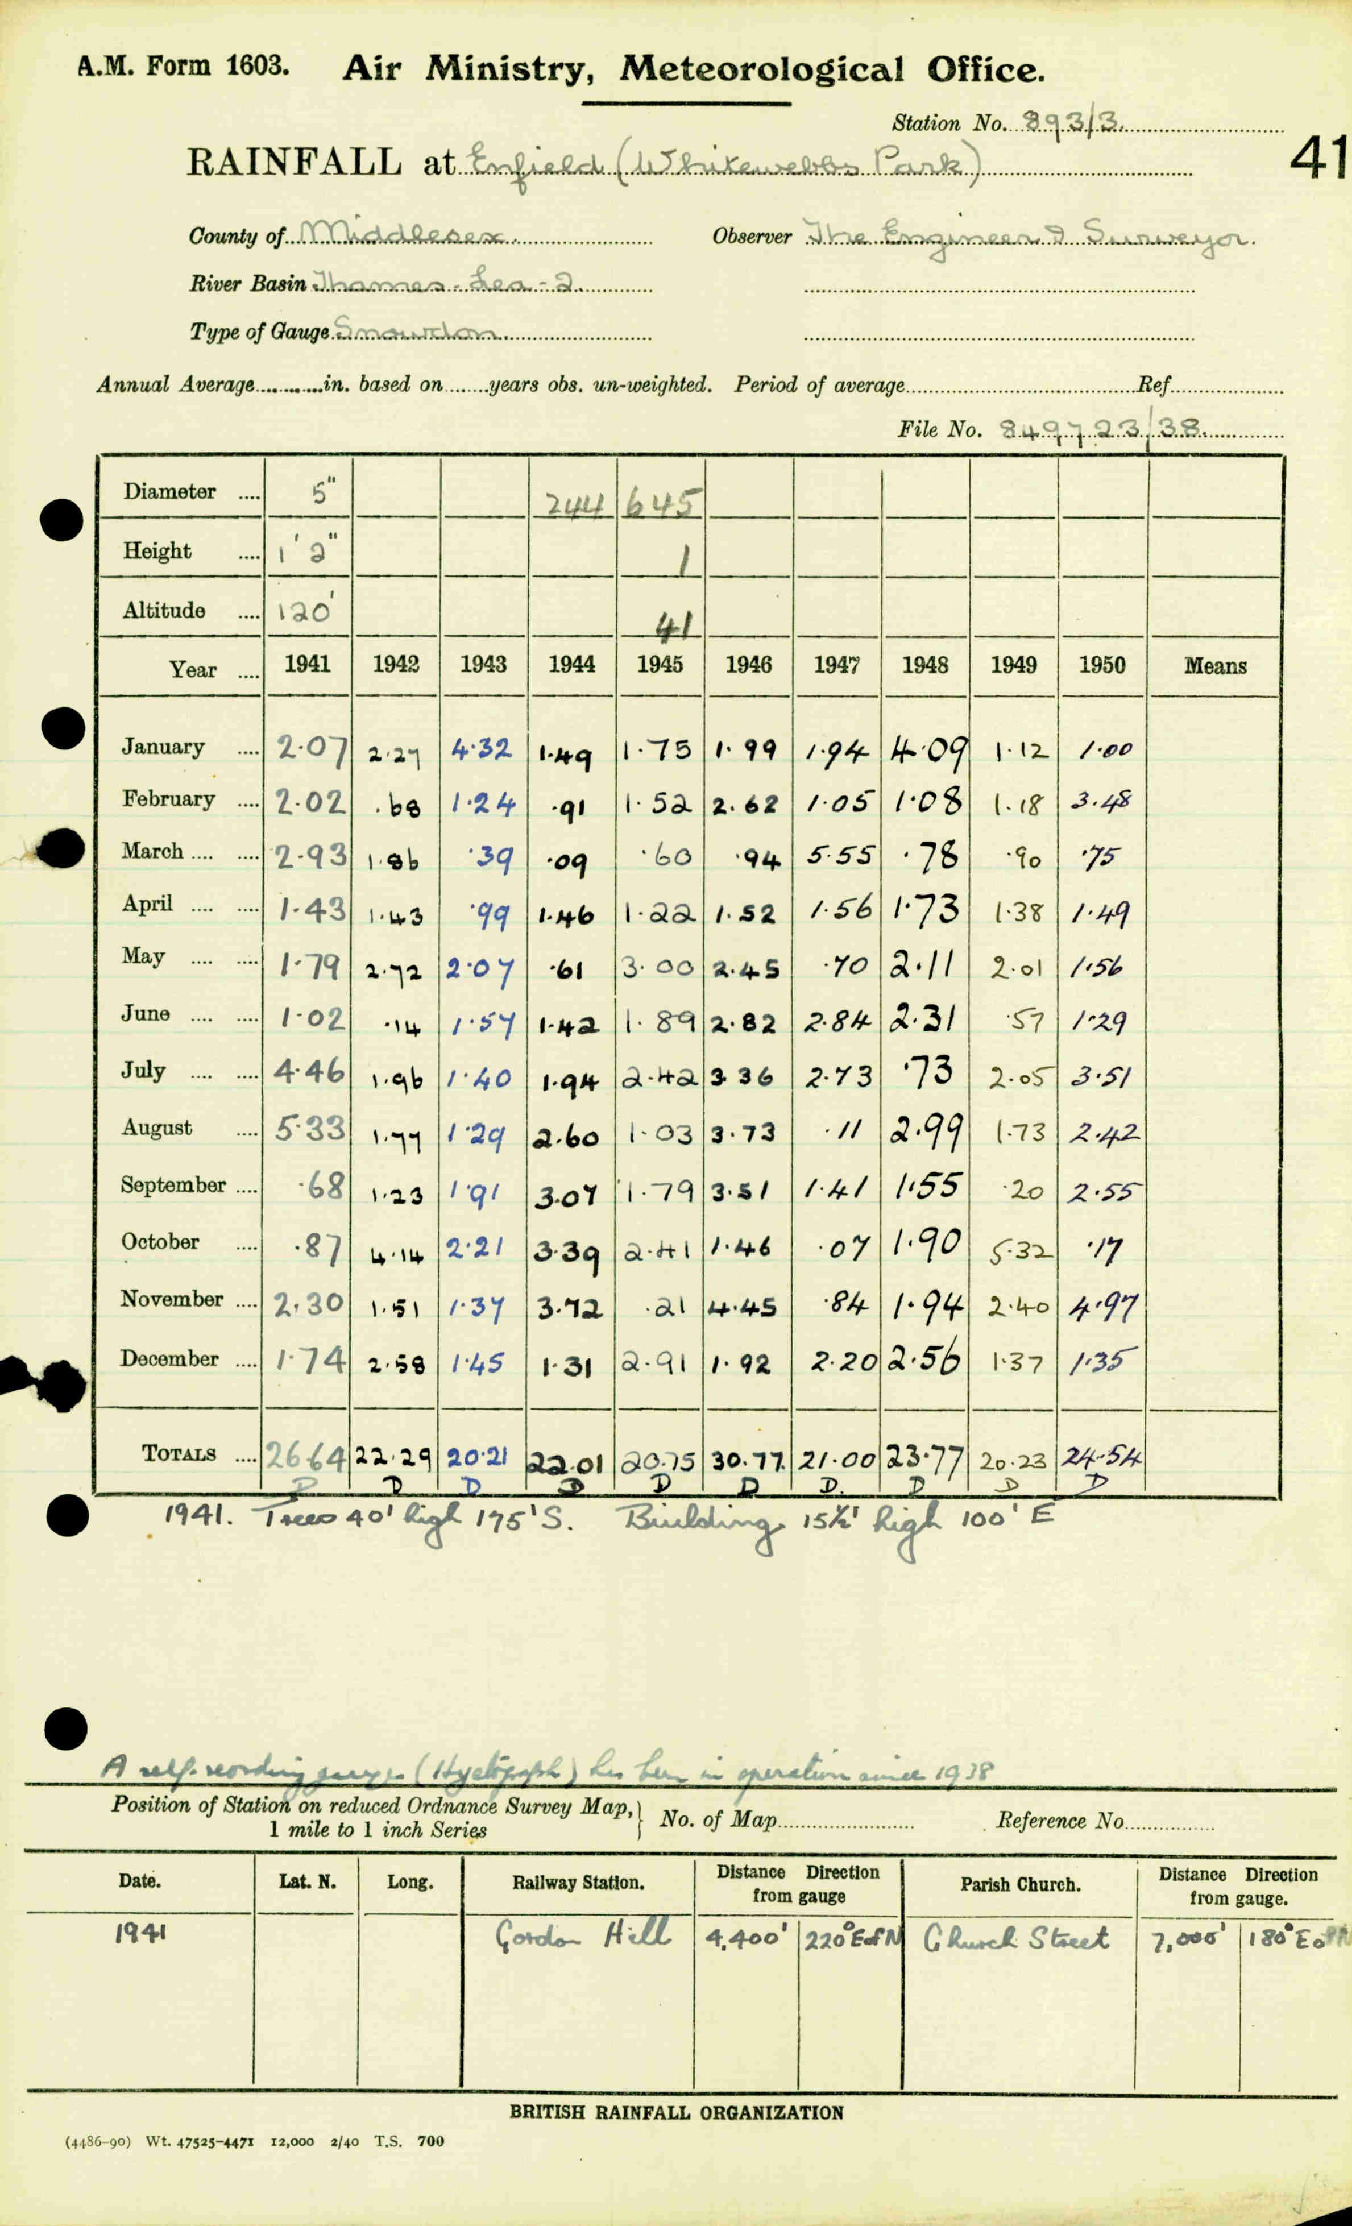 A.M. Form 1603. Air Ministry, Meteorological Office.
Station No. 893/3
41
RAINFALL at Enfield (Whitewebbs Park)
County of Middlesex Observer The Engineer & Surveyor
River Basin Thames - Lea - 2
Type of Gauge Snowdon
Annual Average in. based on years obs. un-weighted. Period of average Ref.
File No. 849723/38
Diameter .... 5" 244 645
Height .... 1' 2" 1
Altitude .... 120' 41
Year .... 1941 1942 1943 1944 1945 1946 1947 1948 1949 1950 Means
January .... 2.07 2.27 4.32 1.49 1.75 1.99 1.94 4.09 1.12 1.00
February .... 2.02 .68 1.24 .91 1.52 2.62 1.05 1.08 1.18 3.48
March .... .... 2.93 1.86 .39 .09 .60 .94 5.55 .78 .90 .75
April .... .... 1.43 1.43 .99 1.46 1.22 1.52 1.56 1.73 1.38 1.49
May .... .... 1.79 2.72 2.07 .61 3.00 2.45 .70 2.11 2.01 1.56
June .... .... 1.02 .14 1.57 1.42 1.89 2.82 2.84 2.31 .57 1.29
July .... .... 4.46 1.96 1.40 1.94 2.42 3.36 2.73 .73 2.05 3.51
August .... 5.33 1.77 1.29 2.60 1.03 3.73 .11 2.99 1.73 2.42
September .... .68 1.23 1.91 3.07 1.79 3.51 1.41 1.55 .20 2.55
October .... .87 4.14 2.21 3.39 2.41 1.46 .07 1.90 5.32 .17
November .... 2.30 1.51 1.37 3.72 .21 4.45 .84 1.94 2.40 4.97
December .... 1.74 2.58 1.45 1.31 2.91 1.92 2.20 2.56 1.37 1.35
TOTALS .... 26.64 22.29 20.21 22.01 20.75 30.77 21.00 23.77 20.23 24.54
D D D D D D D. D D D
1941. Trees 40' high 175' S. Building 15½' high 100' E
A self-recording gauge (Hyetograph) has been in operation since 1938
Position of Station on reduced Ordnance Survey Map, } No. of Map Reference No.
1 mile to 1 inch Series
Date. Lat. N. Long. Railway Station. Distance Direction from gauge Parish Church. Distance Direction from gauge.
1941 Gordon Hill 4,400' 220° E of N Church Street 7,000' 180° E of N
BRITISH RAINFALL ORGANIZATION
(4486-90) Wt. 47525-4471 12,000 2/40 T.S. 700